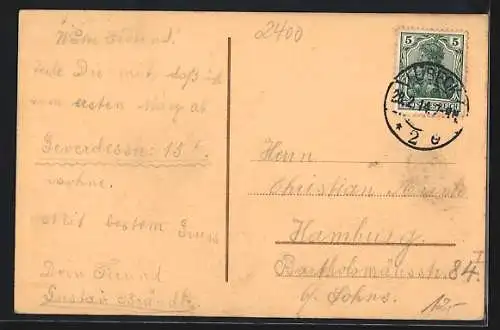 2400
Werter Freund!
teile Dir mit, daß ich
vom ersten März ab
Geverdesstr. 15 I.
wohne.
Mit bestem Gruss
Dein Freund
Gustav
5
LÜBECK
2 e
Herrn
Christian
Hamburg.
Bartholomäusstr. 84 I.
b. Johns.
12.-